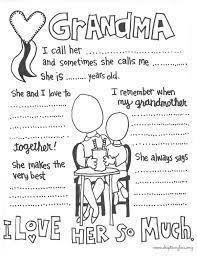 GRANDMA
I call her ..........
and sometimes she calls me ..........
She is ........ years old.
She and I love to
together!
I remember when
my grandmother
She makes the
very best
She always says
I LOVE HER SO MUCH.